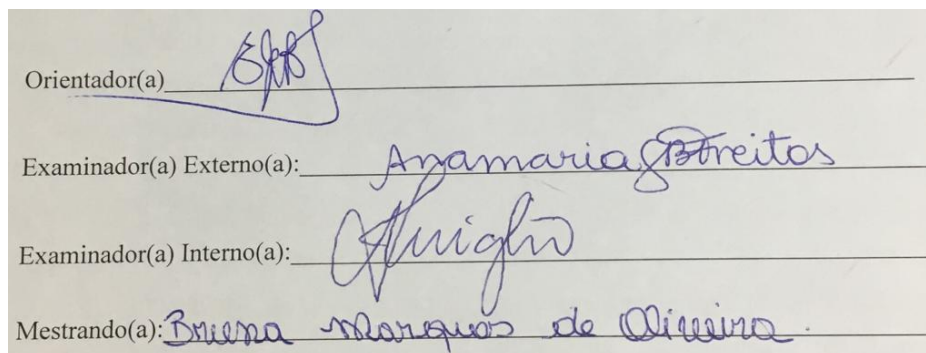 Orientador(a)
Examinador(a) Externo(a): Anamaria G B Freitas
Examinador(a) Interno(a):
Mestrando(a): Bruna Marques de Oliveira.